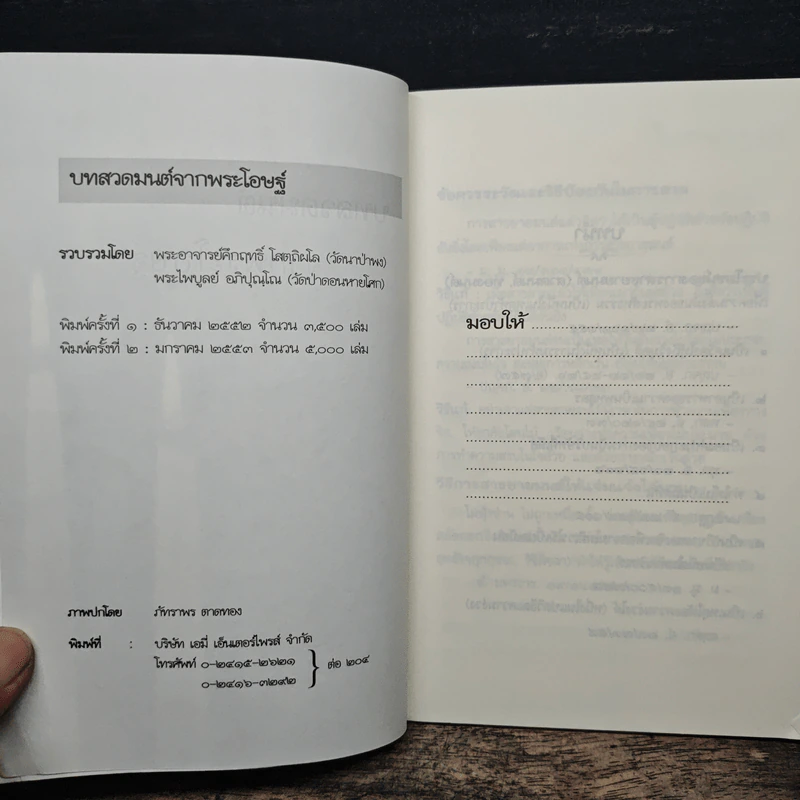 บทสวดมนต์จากพระโอษฐ์
รวบรวมโดย พระอาจารย์คึกฤทธิ์ โสตฺถิผโล (วัดนาป่าพง)
พระไพบูลย์ อภิปุณฺโณ (วัดป่าดอนหายโศก)
พิมพ์ครั้งที่ ๑ : ธันวาคม ๒๕๕๒ จำนวน ๓,๕๐๐ เล่ม
พิมพ์ครั้งที่ ๒ : มกราคม ๒๕๕๓ จำนวน ๕,๐๐๐ เล่ม
ภาพปกโดย ภัทราพร ตาดทอง
พิมพ์ที่ : บริษัท เอมี่ เอ็นเตอร์ไพรส์ จำกัด
โทรศัพท์ ๐-๒๔๑๕-๒๖๒๑
๐-๒๔๑๖-๓๒๙๒
ต่อ ๒๐๔
มอบให้